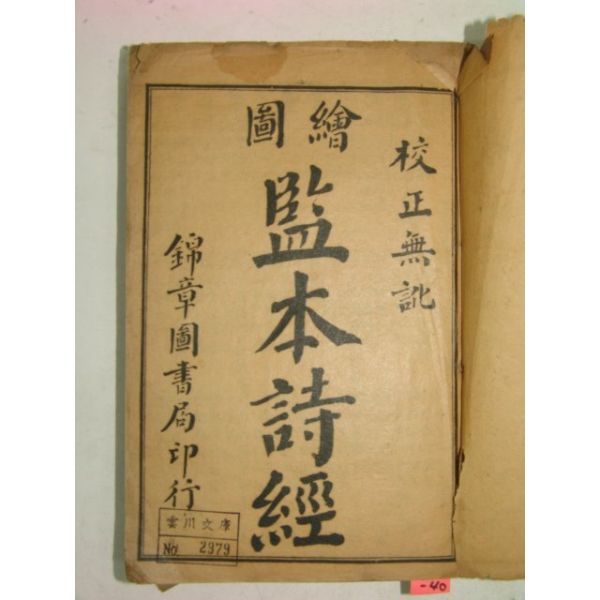 校正無訛
繪圖
監本詩經
錦章圖書局印行
雲川文庫
No. 2979
-40